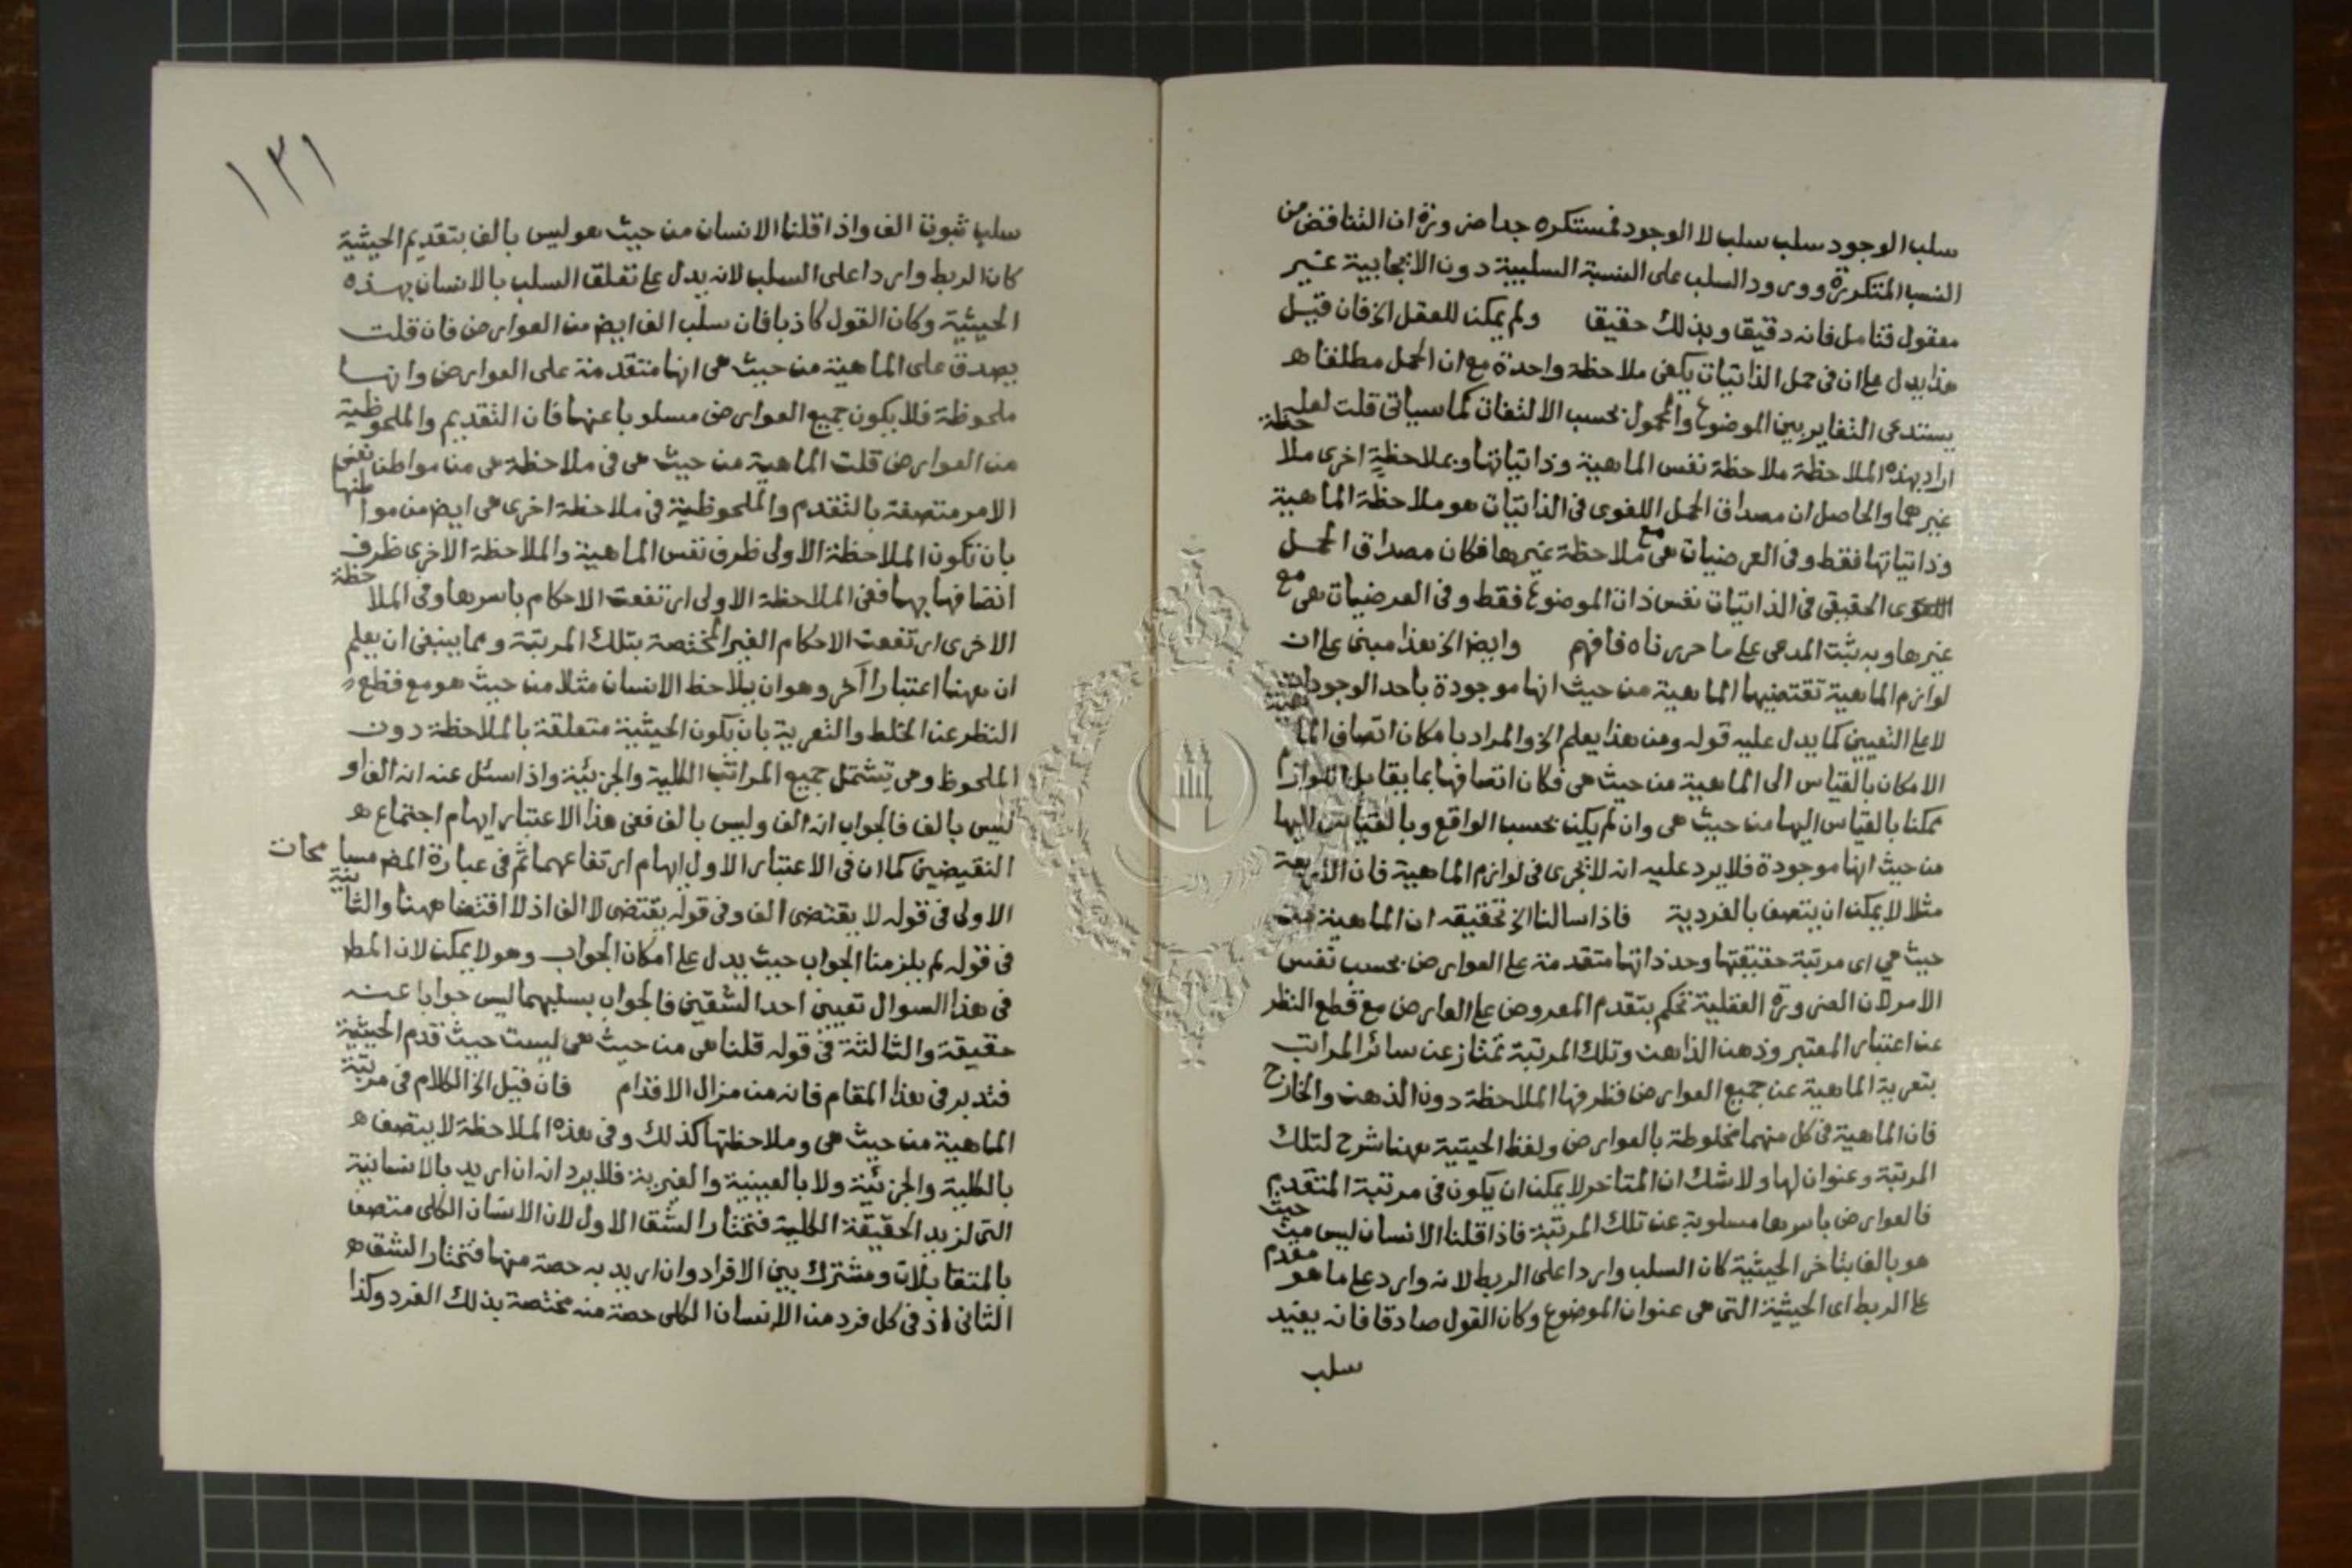 سلب الوجود سلب سلب لا الوجود فمستكره جدا ضرورة ان التناقض من
النسب المتكررة وورود السلب على النسبة السلبية دون الايجابية غير
معقول فتامل فانه دقيق وبذلك حقيق ولم يمكن للعقل الخ فان قيل
هذا يدل على ان في حمل الذاتيات يكفى ملاحظة واحدة مع ان الحمل مطلقا ه
يستدعى التغاير بين الموضوع والمحمول بحسب الالتفات كما سياتى قلت لعله
اراد بهذه الملاحظة ملاحظة نفس الماهية وذاتياتها وبملاحظة اخرى ملاحظة
غيرهما والحاصل ان مصداق الحمل اللغوى فى الذاتيات هو ملاحظة الماهية
وذاتياتها فقط وفى العرضيات هى مع ملاحظة غيرها فكان مصداق الحمل
الحقيقى فى الذاتيات نفس ذات الموضوع فقط وفى العرضيات هى مع
غيرها وبه يثبت المدعى على ما حررناه فافهم وايضا الخ هذا مبنى على ان
لوازم الماهية تقتضيها الماهية من حيث انها موجودة باحد الوجودات
لا على التعيين كما يدل عليه قوله ومن هذا يعلم الخ والمراد بامكان اتصاف الماهية
الامكان بالقياس الى الماهية من حيث هى فكان اتصافها بما يقابل اللوازم
ممكنا بالقياس اليها من حيث هى وان لم يكن بحسب الواقع وبالقياس اليها
من حيث انها موجودة فلا يرد عليه انه لا يجرى فى لوازم الماهية فان الاربعة
مثلا لا يمكن ان يتصف بالفردية فاذا سالنا الخ تحقيقه ان الماهية من
حيث هي اى مرتبة حقيقتها وحد ذاتها متقدمة على العوارض بحسب نفس
الامر لان الضرورة العقلية تحكم بتقدم المعروض على العارض مع قطع النظر
عن اعتبار المعتبر وذهن الذاهن وتلك المرتبة تمتاز عن سائر المراتب
بتعرية الماهية عن جميع العوارض فظرفها الملاحظة دون الذهن والخارج
فان الماهية فى كل منهما مخلوطة بالعوارض ولفظ الحيثية ههنا شرح لتلك
المرتبة وعنوان لها ولا شك ان المتاخر لا يمكن ان يكون فى مرتبة المتقدم
فالعوارض باسرها مسلوبة عن تلك المرتبة فاذا قلنا الانسان ليس من حيث
هو بالف بتاخر الحيثية كان السلب واردا على الربط لانه وارد على ما هو مقدم
على الربط اى الحيثية التى هى عنوان الموضوع وكان القول صادقا فانه يفيد
سلب
١٣١
سلب ثبوت الف واذا قلنا الانسان من حيث هو ليس بالف بتقديم الحيثية
كان الربط واردا على السلب لانه يدل على تعلق السلب بالانسان بهذه
الحيثية وكان القول كاذبا فان سلب الف ايض من العوارض فان قلت
يصدق على الماهية من حيث هى انها متقدمة على العوارض وانها
ملحوظة فلا يكون جميع العوارض مسلوبا عنها فان التقديم والملحوظية
من العوارض قلت الماهية من حيث هى فى ملاحظة هى من مواطن نفس
الامر متصفة بالتقدم والملحوظية فى ملاحظة اخرى هى ايض من مواطنها
بان تكون الملاحظة الاولى ظرف نفس الماهية والملاحظة الاخرى ظرف
اتصافها بهما ففى الملاحظة الاولى ارتفعت الاحكام باسرها وفى الملاحظة
الاخرى ارتفعت الاحكام الغير المختصة بتلك المرتبة ومما ينبغى ان يعلم
ان ههنا اعتبارا آخر وهو ان يلاحظ الانسان مثلا من حيث هو مع قطع
النظر عن الخلط والتعرية بان يكون الحيثية متعلقة بالملاحظة دون
الملحوظ وهى تشتمل جميع المراتب الكلية والجزئية واذا سئل عنه انه الف او
ليس بالف فالجواب انه الف وليس بالف ففى هذا الاعتبار ايهام اجتماع ه
النقيضين كما ان فى الاعتبار الاول ايهام ارتفاعهما ثم فى عبارة المص مسامحات
الاولى فى قوله لا يقتضى الف وفى قوله يقتضى لا الف اذ لا اقتضا ههنا والثانية
فى قوله لم يلزمنا الجواب حيث يدل على امكان الجواب وهو لا يمكن لان المط
فى هذا السوال تعيين احد الشقين فالجواب بسلبهما ليس جوابا عنه
حقيقة والثالثة فى قوله قلنا هى من حيث هى ليست حيث قدم الحيثية
فتدبر فى هذا المقام فانه من مزال الاقدام فان قيل الخ الكلام فى مرتبة
الماهية من حيث هى وملاحظتها كذلك وفى هذه الملاحظة لا يتصف ه
بالكلية والجزئية ولا بالعينية والغيرية فلا يرد انه ان اريد بالانسانية
التى لزيد الحقيقة الكلية فتختار الشق الاول لان الانسان الكلى متصف
بالمتقابلات ومشترك بين الافراد وان اريد به حصة منها فتختار الشق ه
الثانى اذ فى كل فرد من الانسان الكلى حصة منه مختصة بذلك الفرد وكذا